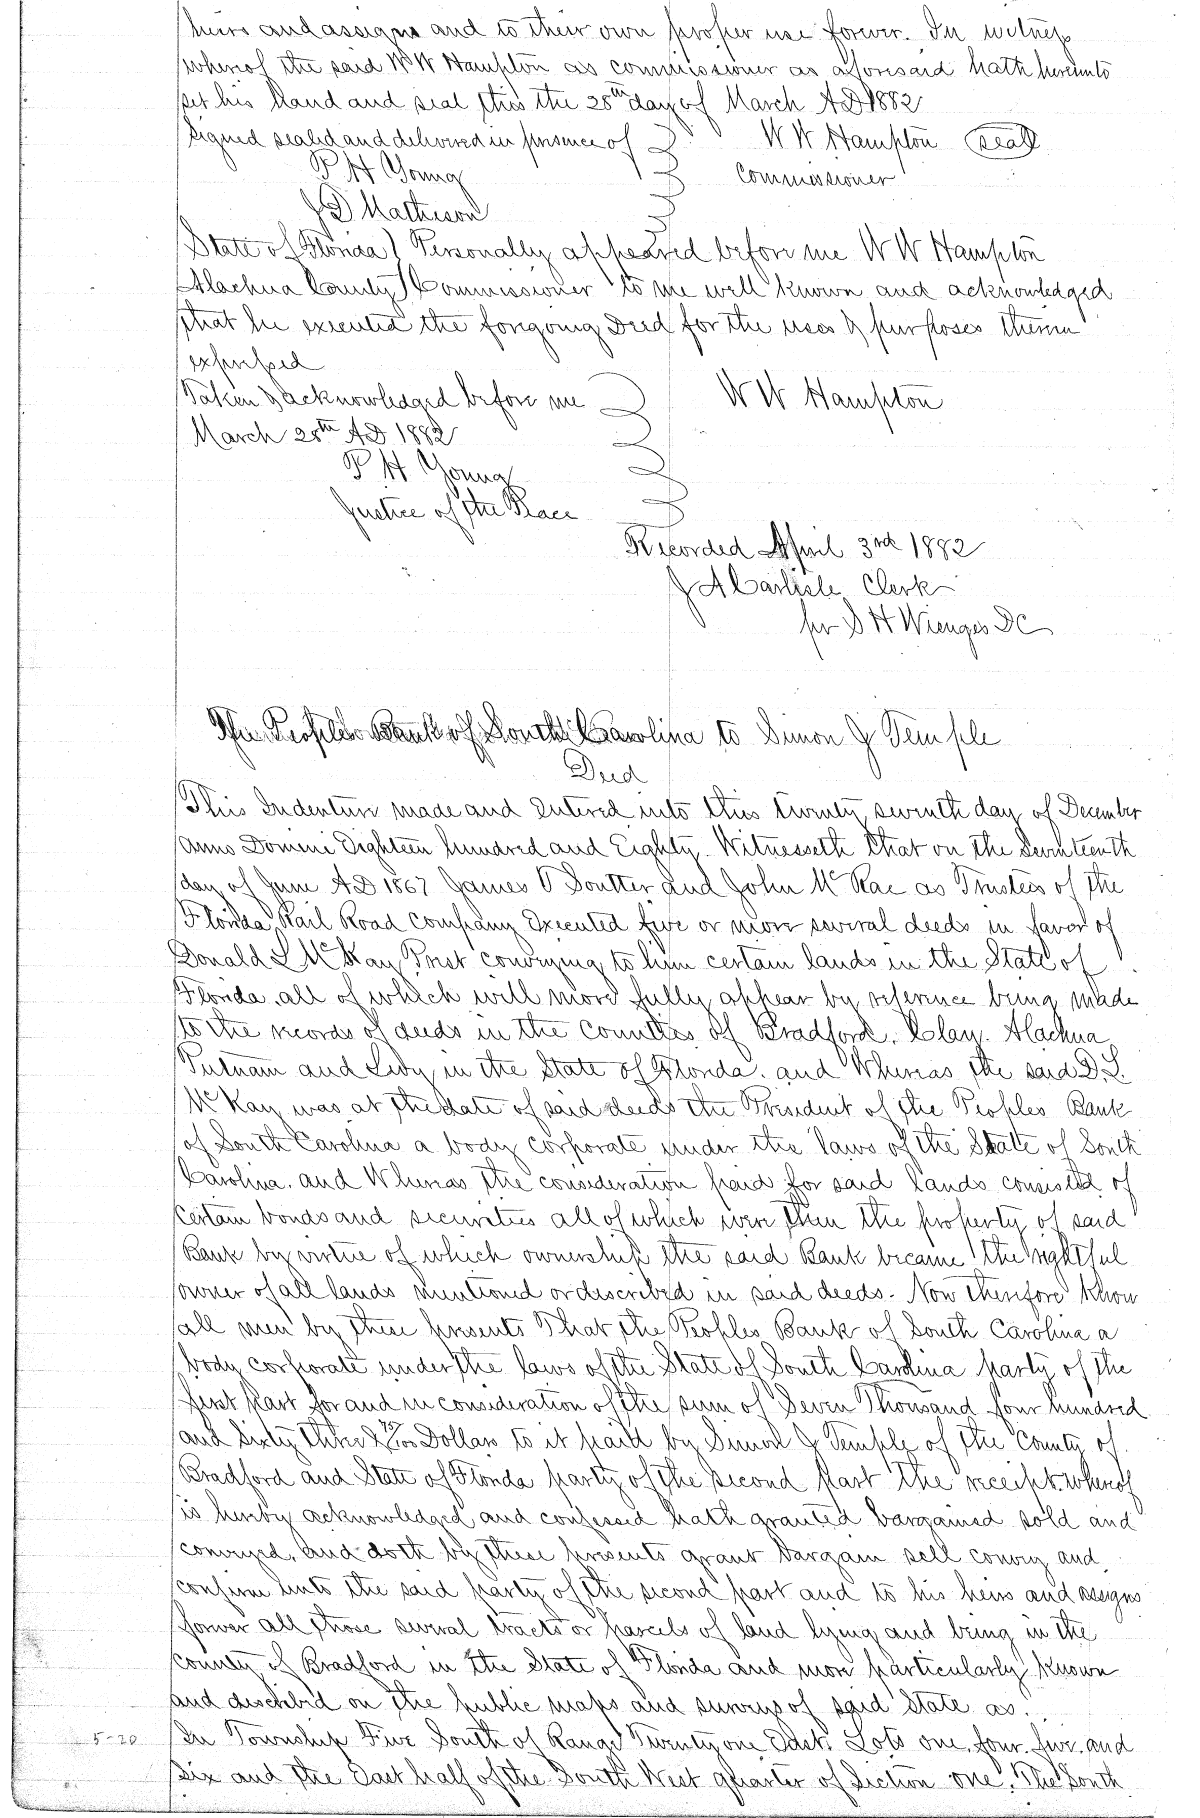 heirs and assigns and to their own proper use forever. In witness
whereof the said W W Hampton as commissioner as aforesaid hath hereunto
set his hand and seal this the 28th day of March A D 1882
Signed sealed and delivered in presence of W W Hampton seal
P H Young Commissioner
J D Matheson
State of Florida Personally appeared before me W W Hampton
Alachua County Commissioner to me well known and acknowledged
that he executed the foregoing Deed for the uses & purposes therein
expressed
Taken & acknowledged before me W W Hampton
March 28th A D 1882
P H Young
Justice of the Peace
Recorded April 3rd 1882
J A Carlisle Clerk
per S H Wienges DC
The Peoples Bank of South Carolina to Simon J Temple
Deed
This Indenture made and Entered into this twenty seventh day of December
Anno Domini Eighteen hundred and Eighty. Witnesseth that on the Seventeenth
day of June A D 1867 James T Soutter and John McRae as Trustees of the
Florida Rail Road Company Executed five or more several deeds in favor of
Donald L McKay Prest conveying to him certain lands in the State of
Florida, all of which will more fully appear by reference being made
to the records of deeds in the counties of Bradford, Clay, Alachua
Putnam and Levy in the State of Florida. and Whereas the said D. L.
McKay was at the date of said deeds the President of the Peoples Bank
of South Carolina a body corporate under the laws of the State of South
Carolina. and Whereas the consideration paid for said lands consisted of
certain bonds and securities all of which were then the property of said
Bank by virtue of which ownership the said Bank became the rightful
owner of all lands mentioned or described in said deeds. Now therefore know
all men by these presents That the Peoples Bank of South Carolina a
body corporate under the laws of the State of South Carolina party of the
first part for and in consideration of the sum of Seven Thousand four hundred
and Sixty three & /100 Dollars to it paid by Simon J Temple of the County of
Bradford and State of Florida party of the second part the receipt whereof
is hereby acknowledged and confessed hath granted bargained sold and
conveyed, and doth by these presents grant bargain sell convey and
confirm unto the said party of the second part and to his heirs and assigns
forever all those several tracts or parcels of land lying and being in the
county of Bradford in the State of Florida and more particularly known
and described on the public maps and surveys of said State as.
5-20 In Township Five South of Range Twenty one East. Lots one, four, five, and
six and the East half of the South West quarter of Section one. The South